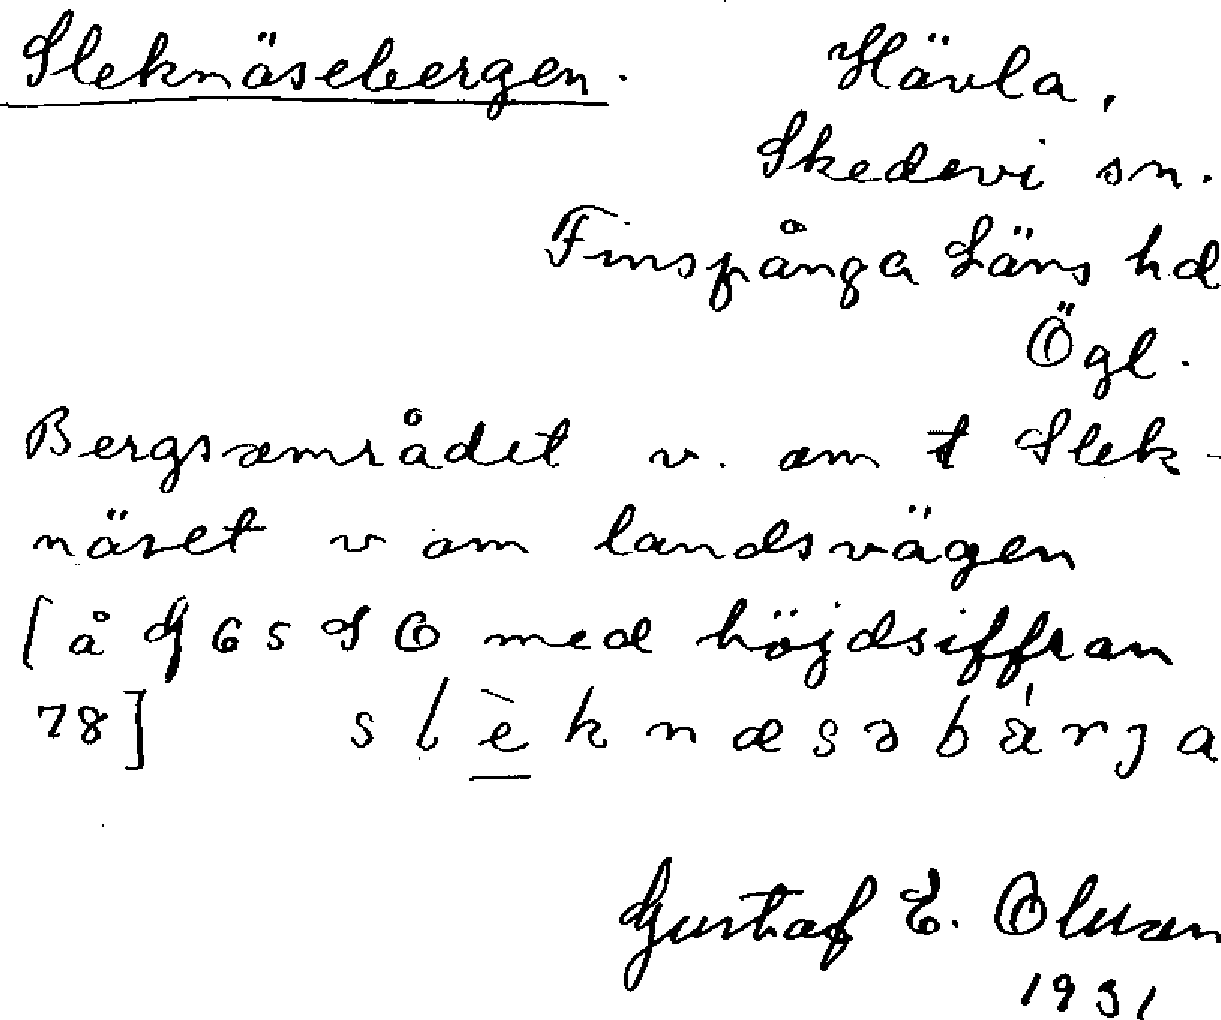 Sleknäsebergen. Hävla,
Skedevi sn.
Finspånga Läns hd
Ögl.
Bergsområdet v. om t Slek-
näset v om landsvägen
[å G 65 S O med höjdsiffran
78] slèknæsəbärja
Gustaf E. Olsson
1931